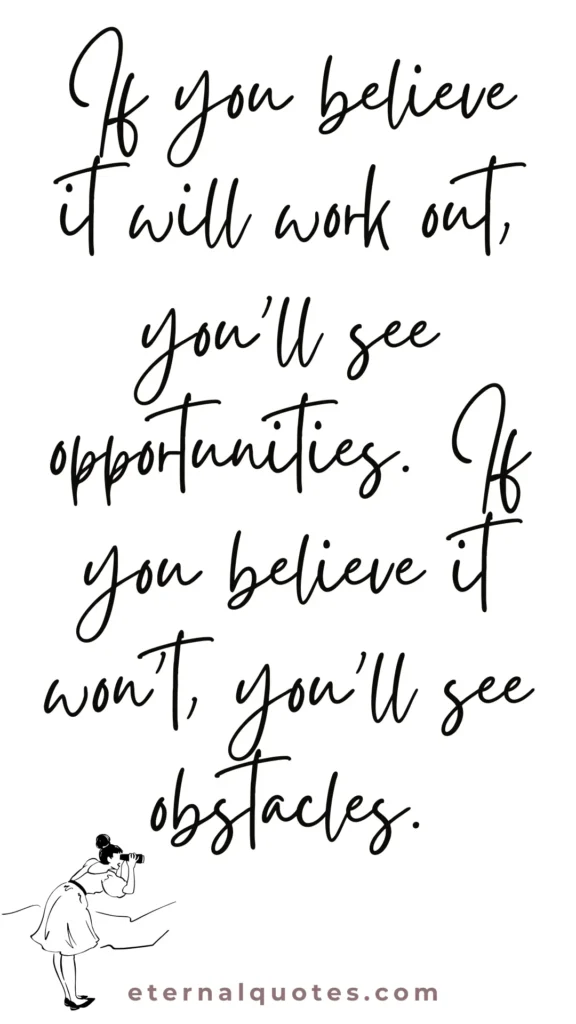 If you believe
it will work out,
you'll see
opportunities. If
you believe it
won't, you'll see
obstacles.
eternalquotes.com